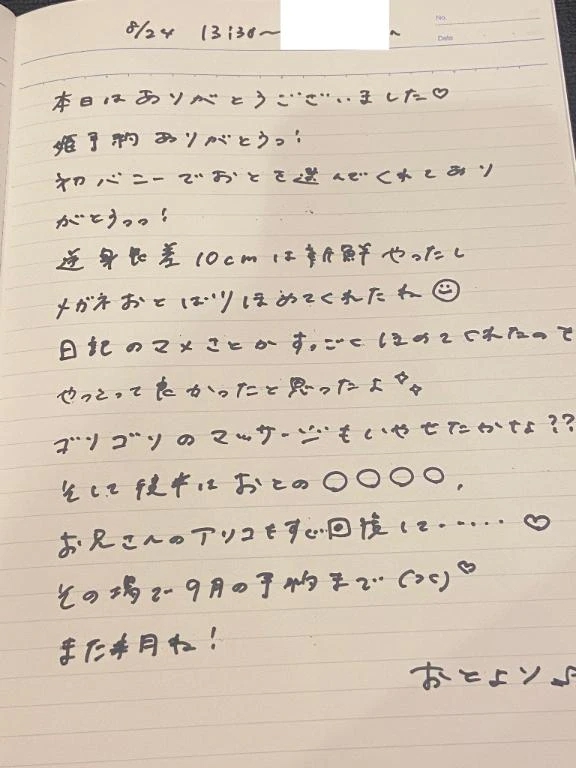 No.
Date
8/24 13:30~
本日はありがとうございました♡
姫予約ありがとうっ!
初バニーでおとを選んでくれてあり
がとうっっ!
逆身長差10cmは新鮮やったし
メガネおとばりほめてくれたね☺
日記のマメさとかすっごくほめてくれたので
やっとって良かったと思ったよ✧✧
ゴリゴリのマッサージもいやせたかなよ??
そして後半はおとの〇〇〇〇,
お兄さんのアソコもすぐ回復して......♡
その場で9月の予約まで(つc)♡
また来月ね!
おとより♪